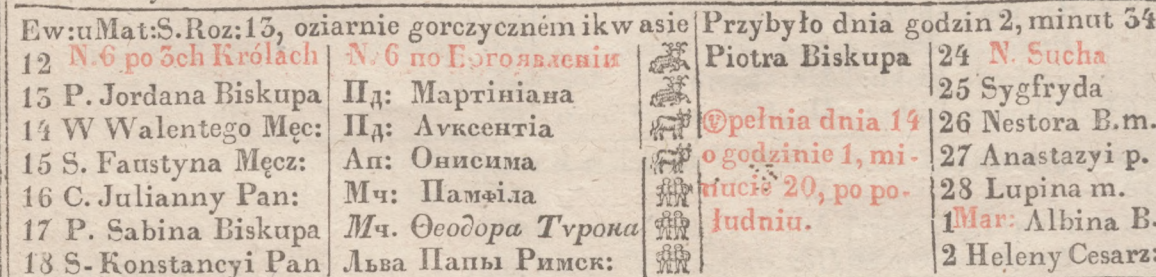 Ew:uMąt:S.Roz:13, oziarnie gorczyczném ikwasie Przybyło dnia godzin 2, minut 34
12 N.6 po 3ch Królach N. 6 по Богоявленіи Piotra Biskupa 24 N. Sucha
13 P. Jordana Biskupa Пд: Мартініана 25 Sygfryda
14 W Walentego Męc: Пд: Аѵксентіа pełnia dnia 14 26 Nestora B.m.
15 S. Faustyna Męcz: Ап: Онисима o godzinie 1, mi- 27 Anastazyi p.
16 C. Julianny Pan: Мч: Памфіла nucie 20, po po- 28 Lupina m.
17 P. Sabina Biskupa Мч. Ѳеодора Тѵрона łudniu. 1 Mar: Albina B.
18 S- Konstancyi Pan Льва Папы Римск: 2 Heleny Cesarz: